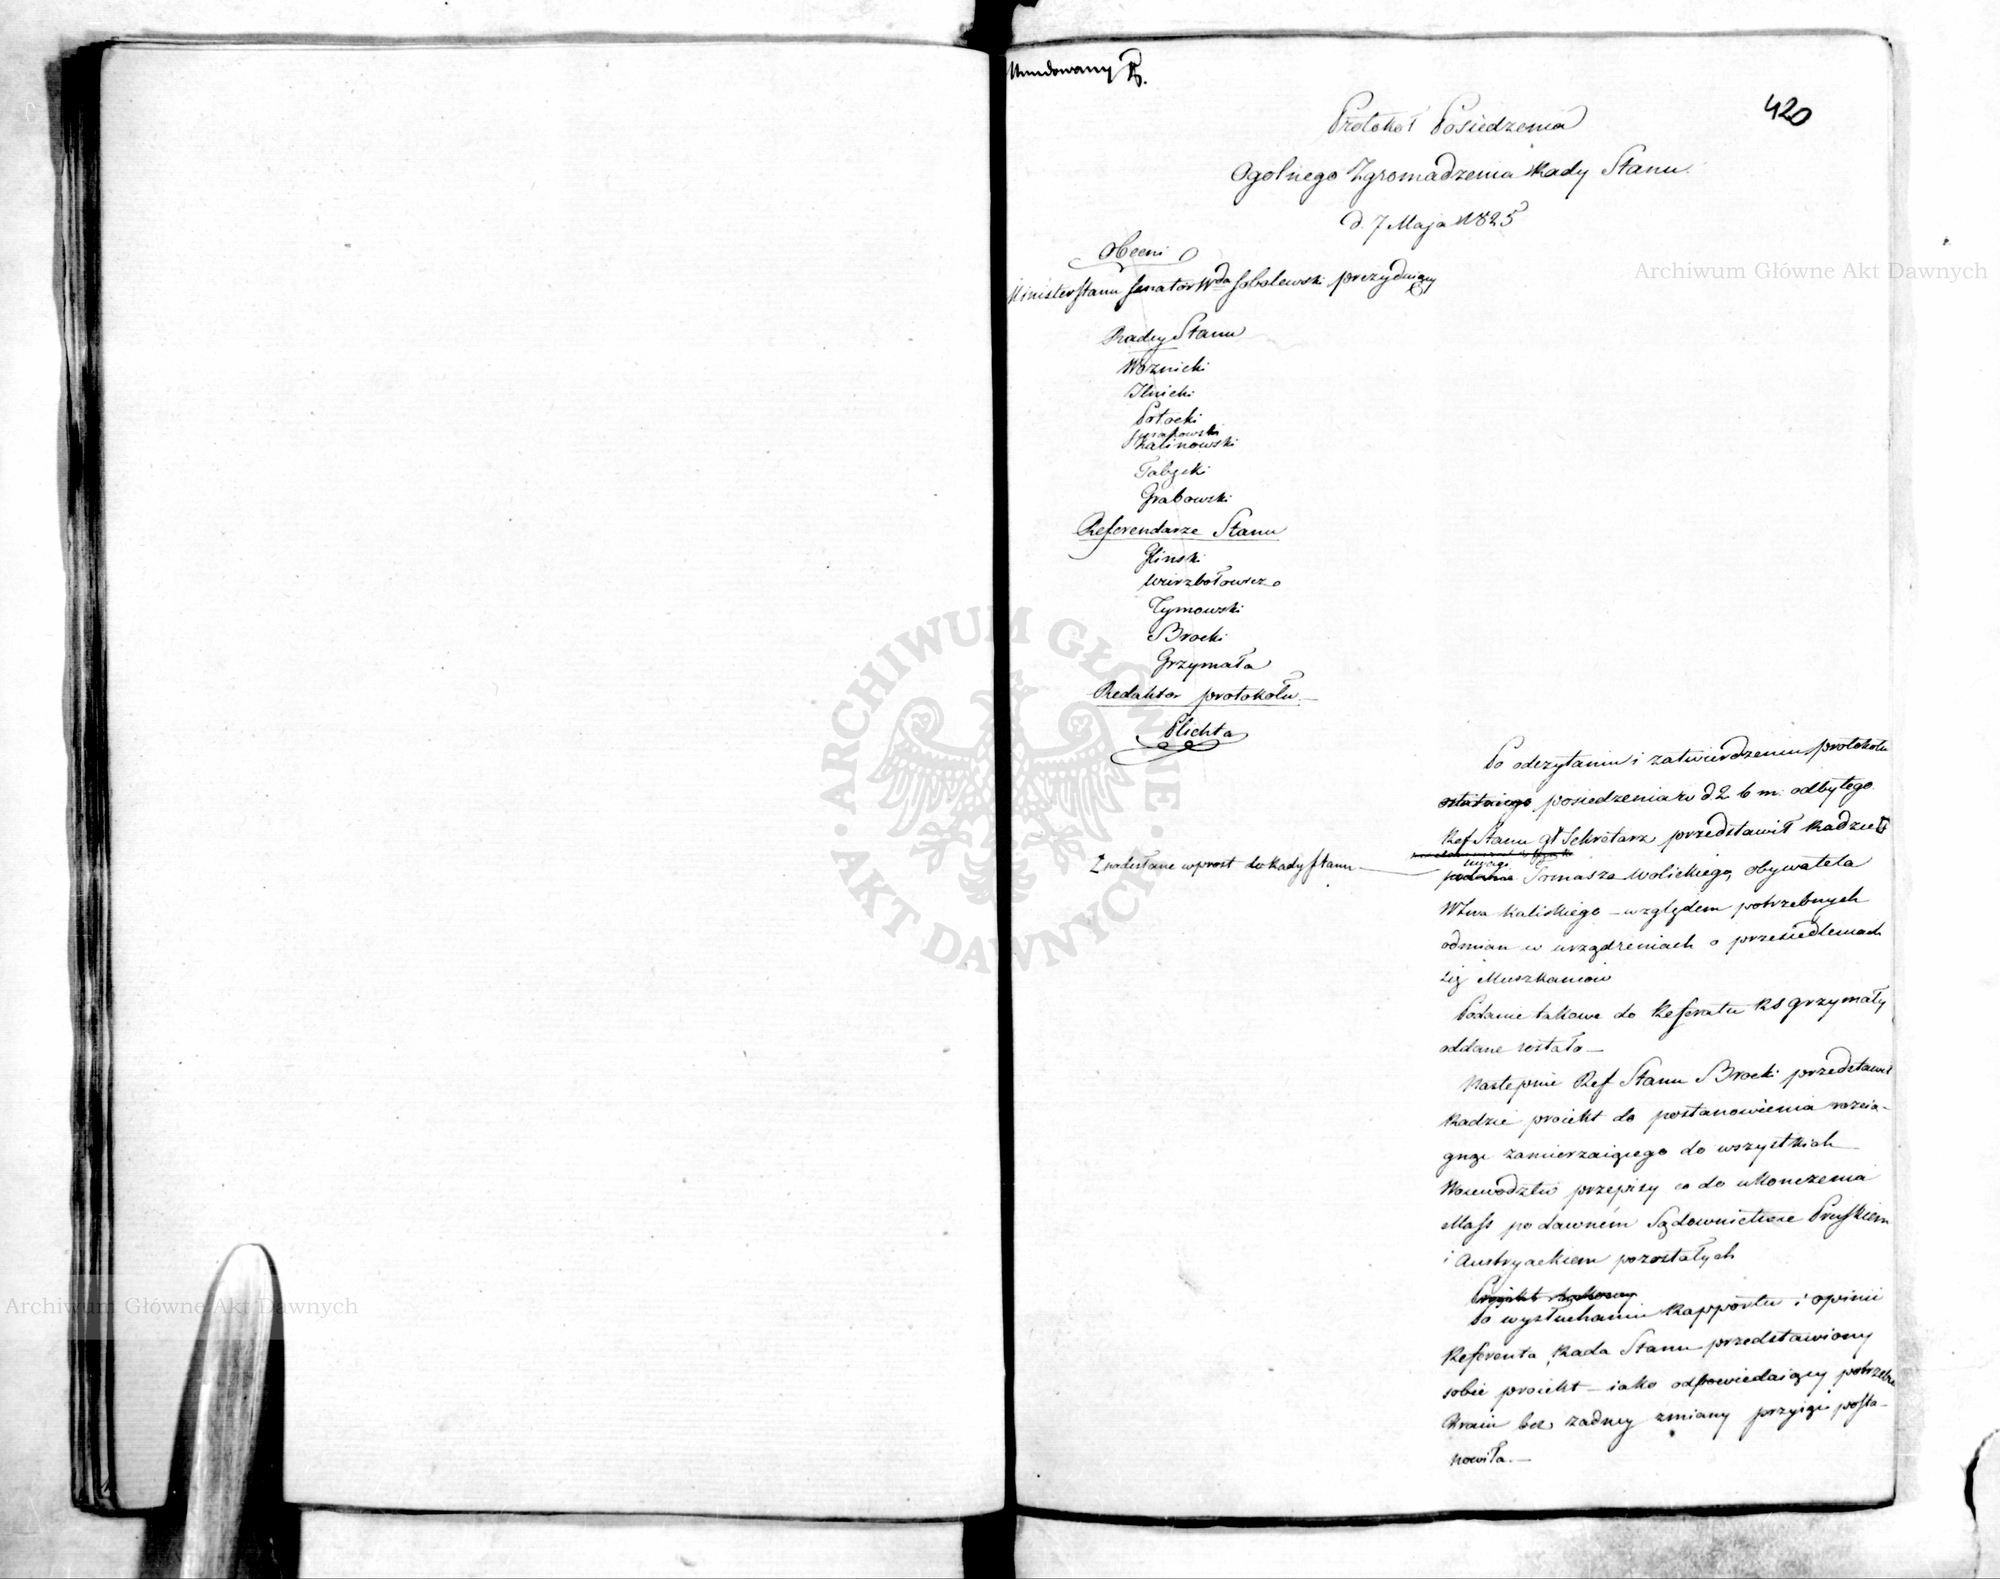 Mundowany
420
Protokół Posiedzenia
Ogolnego Zgromadzenia Rady Stanu.
d. 7 Maja 1825
Obecni
Minister Stanu Senator Wda Sobolewski prezyduiący
Radcy Stanu
Woznicki
Ilnicki
Potocki
Kalinowski
Tabęcki
Grabowski
Referendarze Stanu
Glinski
Wierzbołowicz
Tymowski
Brocki
Grzymała
Redaktor protokołu.—
Plichta
Po odczytaniu i zatwierdzeniu protokołu
ostatniego posiedzenia w d. 2 b m. odbytego.
Ref Stanu gł Sekretarz przedstawił Radzie
nadesłane wprost do Rady Stanu—
uwagi
podanie Tomasza Wolickiego, obywatela
Wztwa Kaliskiego—względem potrzebnych
odmian w urządzeniach o przesiedleniach
się Mieszkancow
Podanie takowe do Referatu RS Grzymały
oddane zostało—
Następnie Ref Stanu Brocki przedstawił
Radzie proiekt do postanowienia rozcią-
gnąć zamierzaiącego do wszystkich
Woiewodztw przepisy co do ukonczenia
Mass po dawném Sądownictwie Pruskiem
i Austryackiem pozostałych
Proiekt takowy
Po wysłuchaniu Rapportu i opinii
Referenta, Rada Stanu przedstawiony
sobie proiekt—iako odpowiedaiący potrzebie
Kraiu bez zadney zmiany przyiąć posta-
nowiła.—
Archiwum Główne Akt Dawnych
Archiwum Główne Akt Dawnych
ARCHIWUM GŁÓWNE · AKT DAWNYCH ·